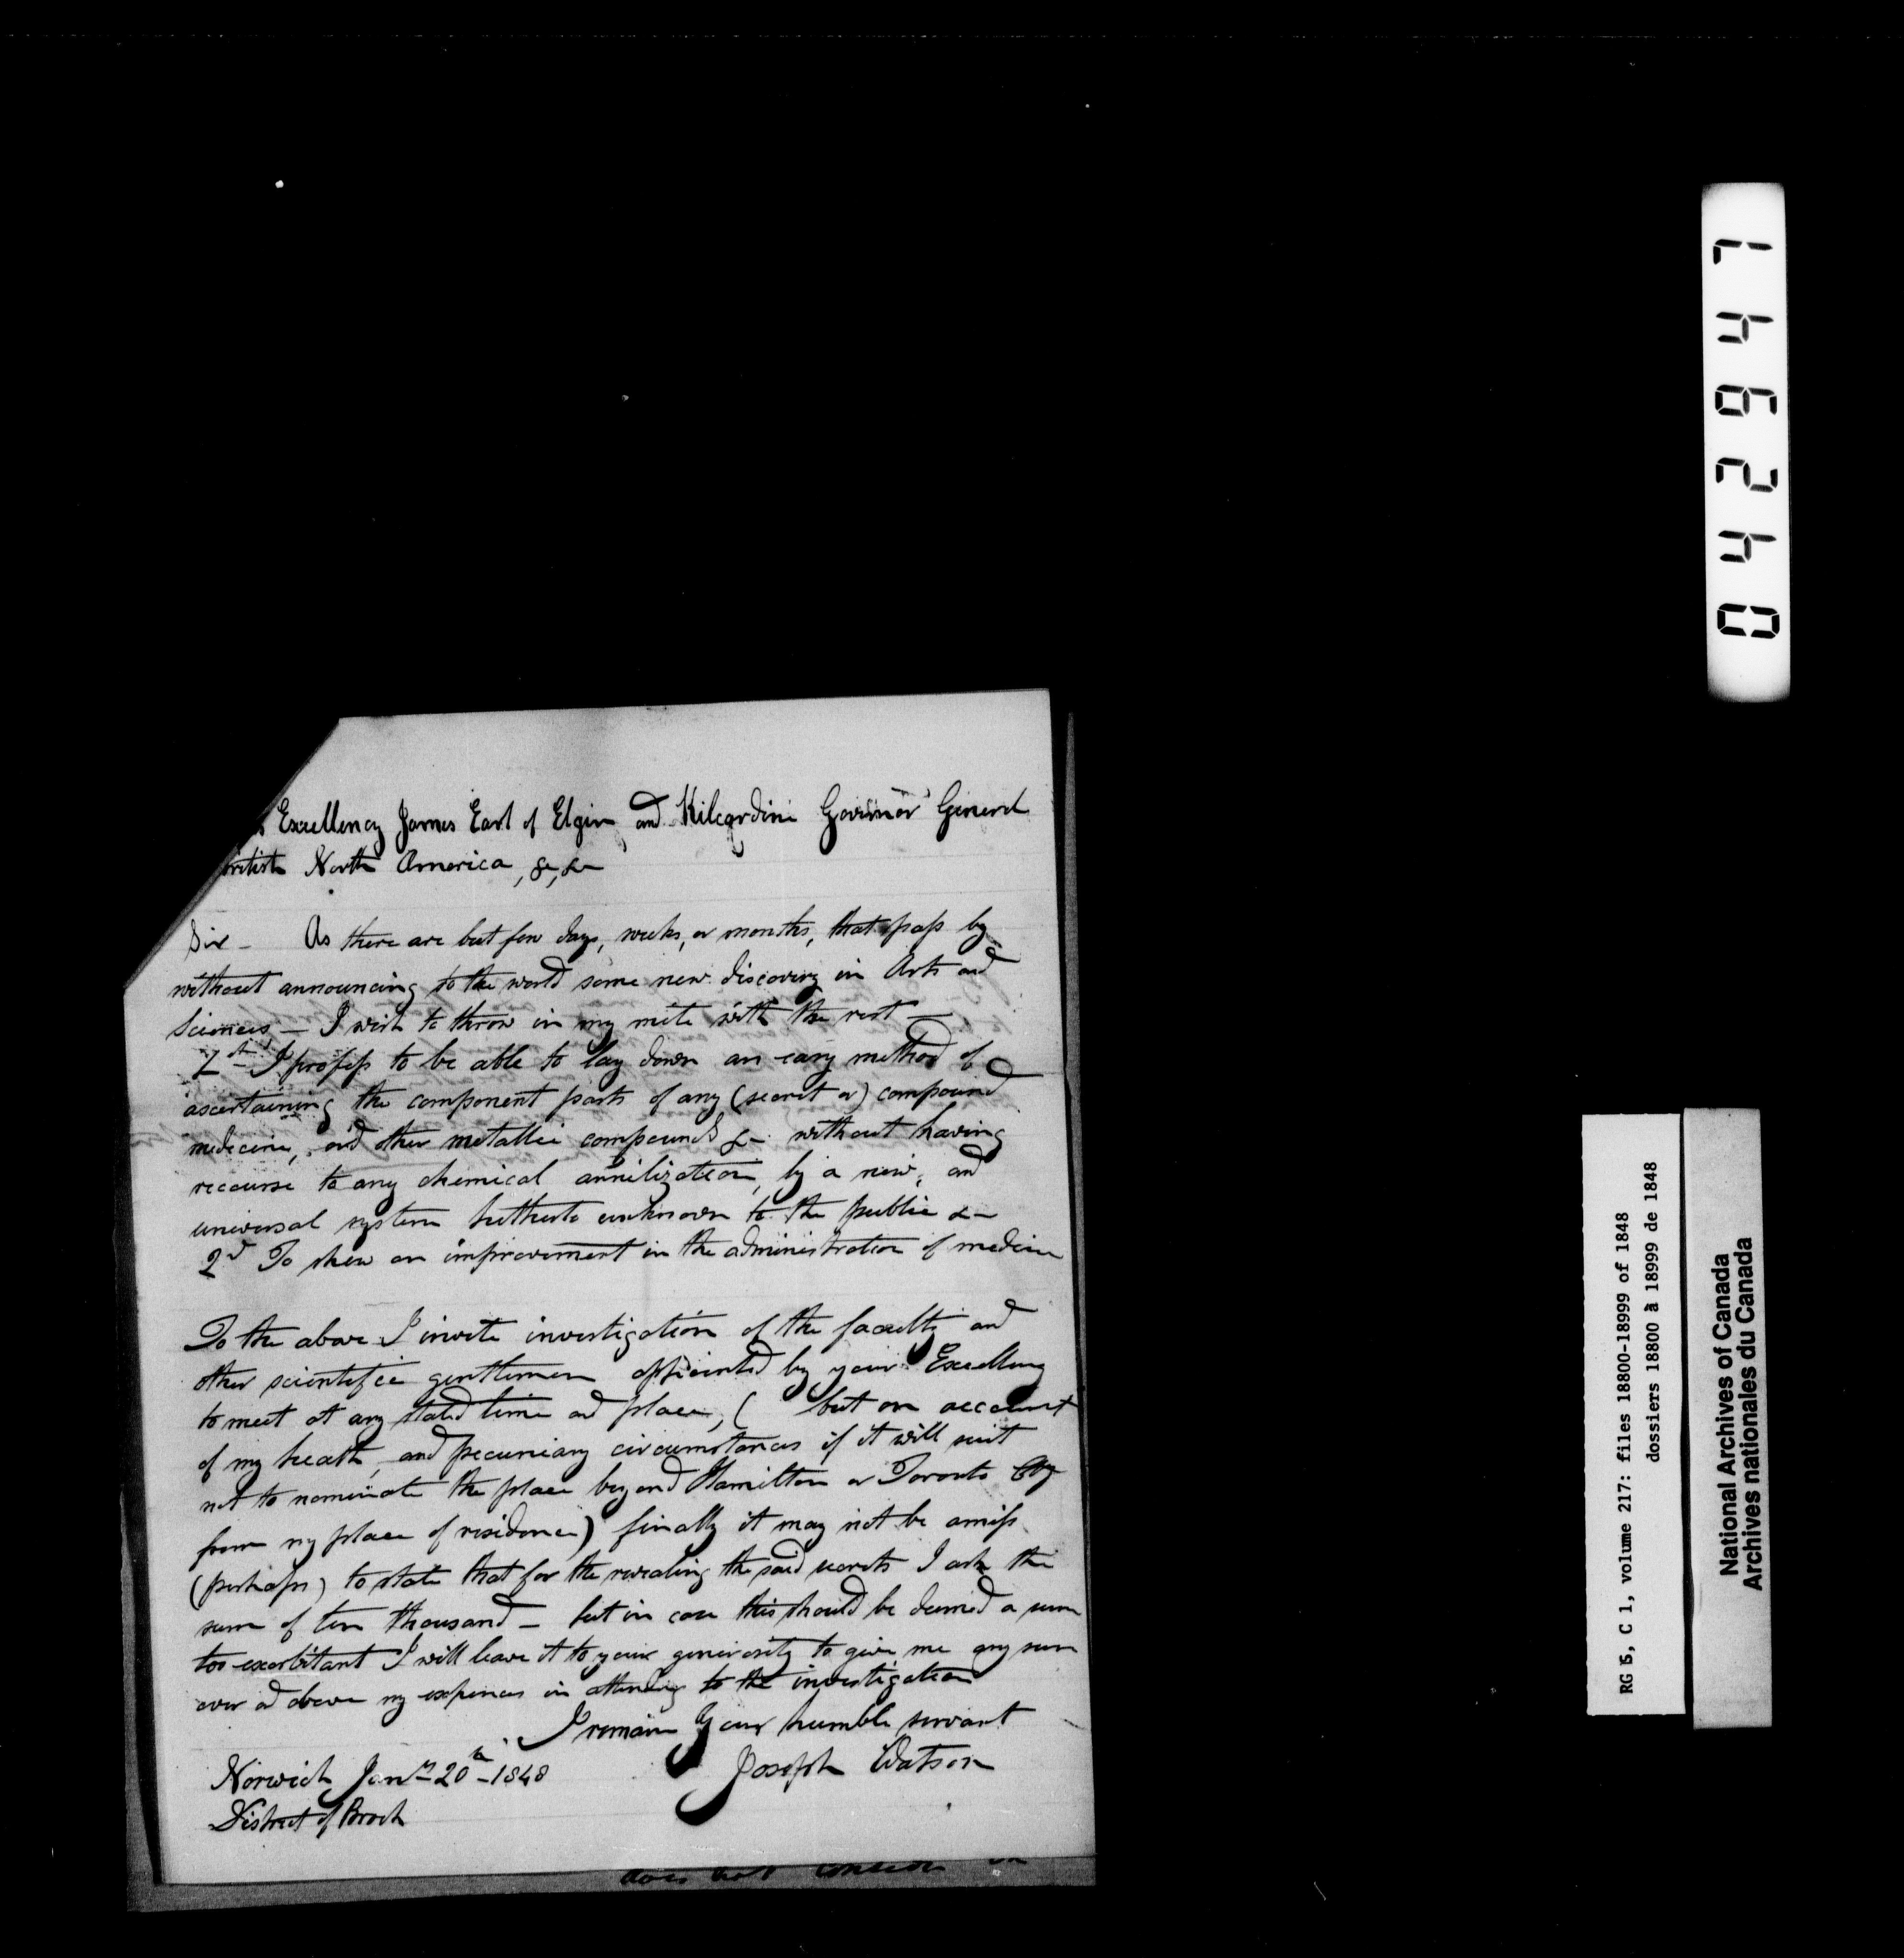 Excellency James Earl of Elgin and Kilcardine Governor General
British North America, &, &c
Sir - As there are but few days, weeks, or months, that pass by
without announcing to the world some new discovery in Arts and
Sciences - I wish to throw in my mite with the rest -
1st I profess to be able to lay down an easy method of
ascertaining the component parts of any (secret or) compound
medecine, and other metallic compounds &c without having
recourse to any chemical annilization, by a new, and
universal system hitherto unknown to the public &c
2d To shew an improvement in the administration of medicin
To the above I invite investigation of the faculty and
other scientific gentlemen appointed by your Excellency
to meet at any stated time and place, ( but on account
of my health, and pecuniary circumstances if it will suit
not to nominate the place beyond Hamilton or Toronto
from my place of residence) finally it may not be amiss
(perhaps) to state that for the revealing the said secrets I ask the
sum of ten thousand - but in case this should be deemed a sum
too exorbitant I will leave it to your generosity to give me any sum
over and above my expences in attending to the investigation
I remain your humble servant
Joseph Watson
Norwich Jany 20th - 1848
District of Brock
does not
044 2641
RG 5, C 1, volume 217: files 18800-18999 of 1848
dossiers 18800 à 18999 de 1848
National Archives of Canada
Archives nationales du Canada